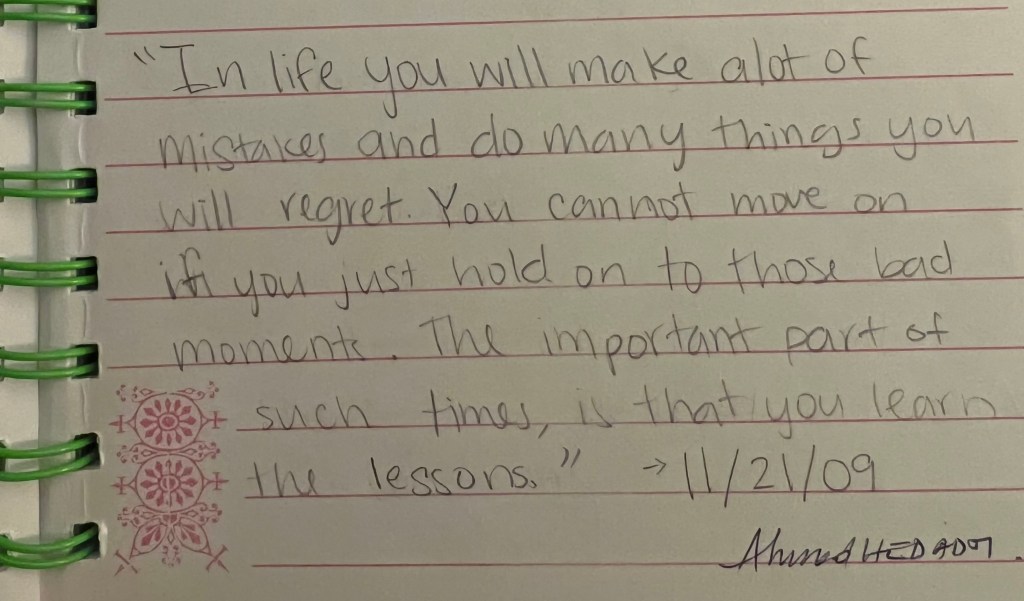 "In life you will make alot of
mistakes and do many things you
will regret. You cannot move on
if you just hold on to those bad
moments. The important part of
such times, is that you learn
the lessons." → 11/21/09